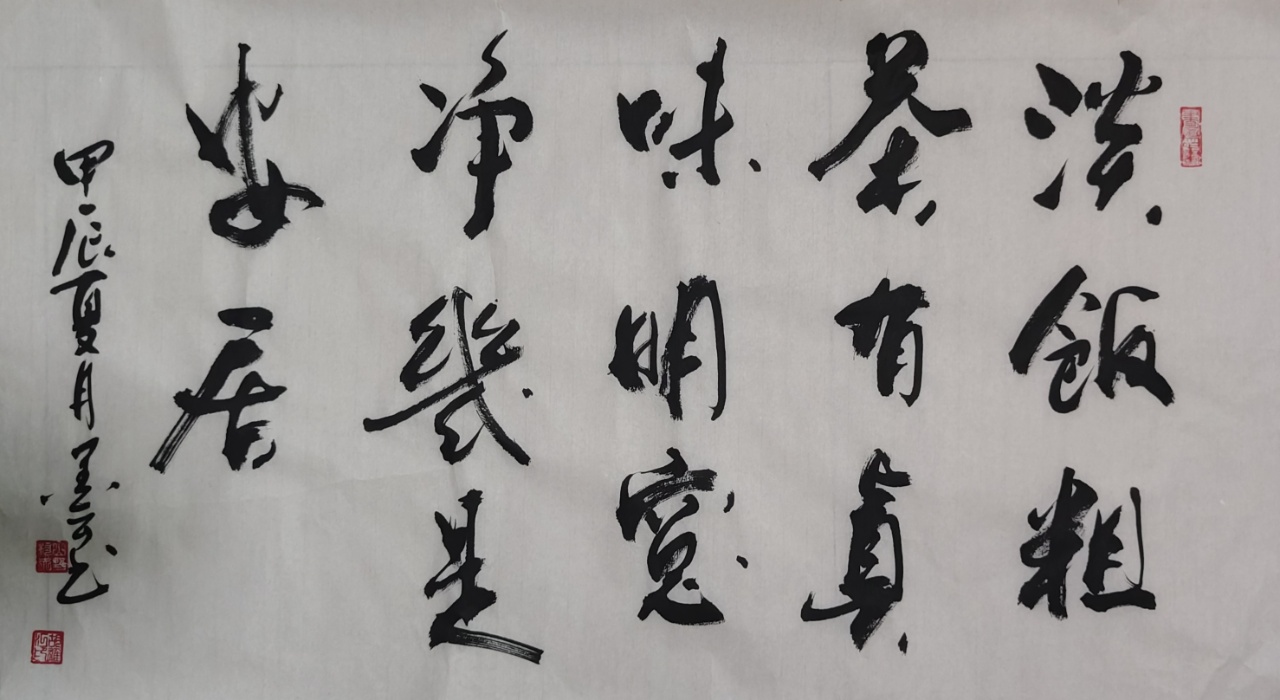 淡飯粗
茶有真
味明窗
净幾是
安居
甲辰夏月